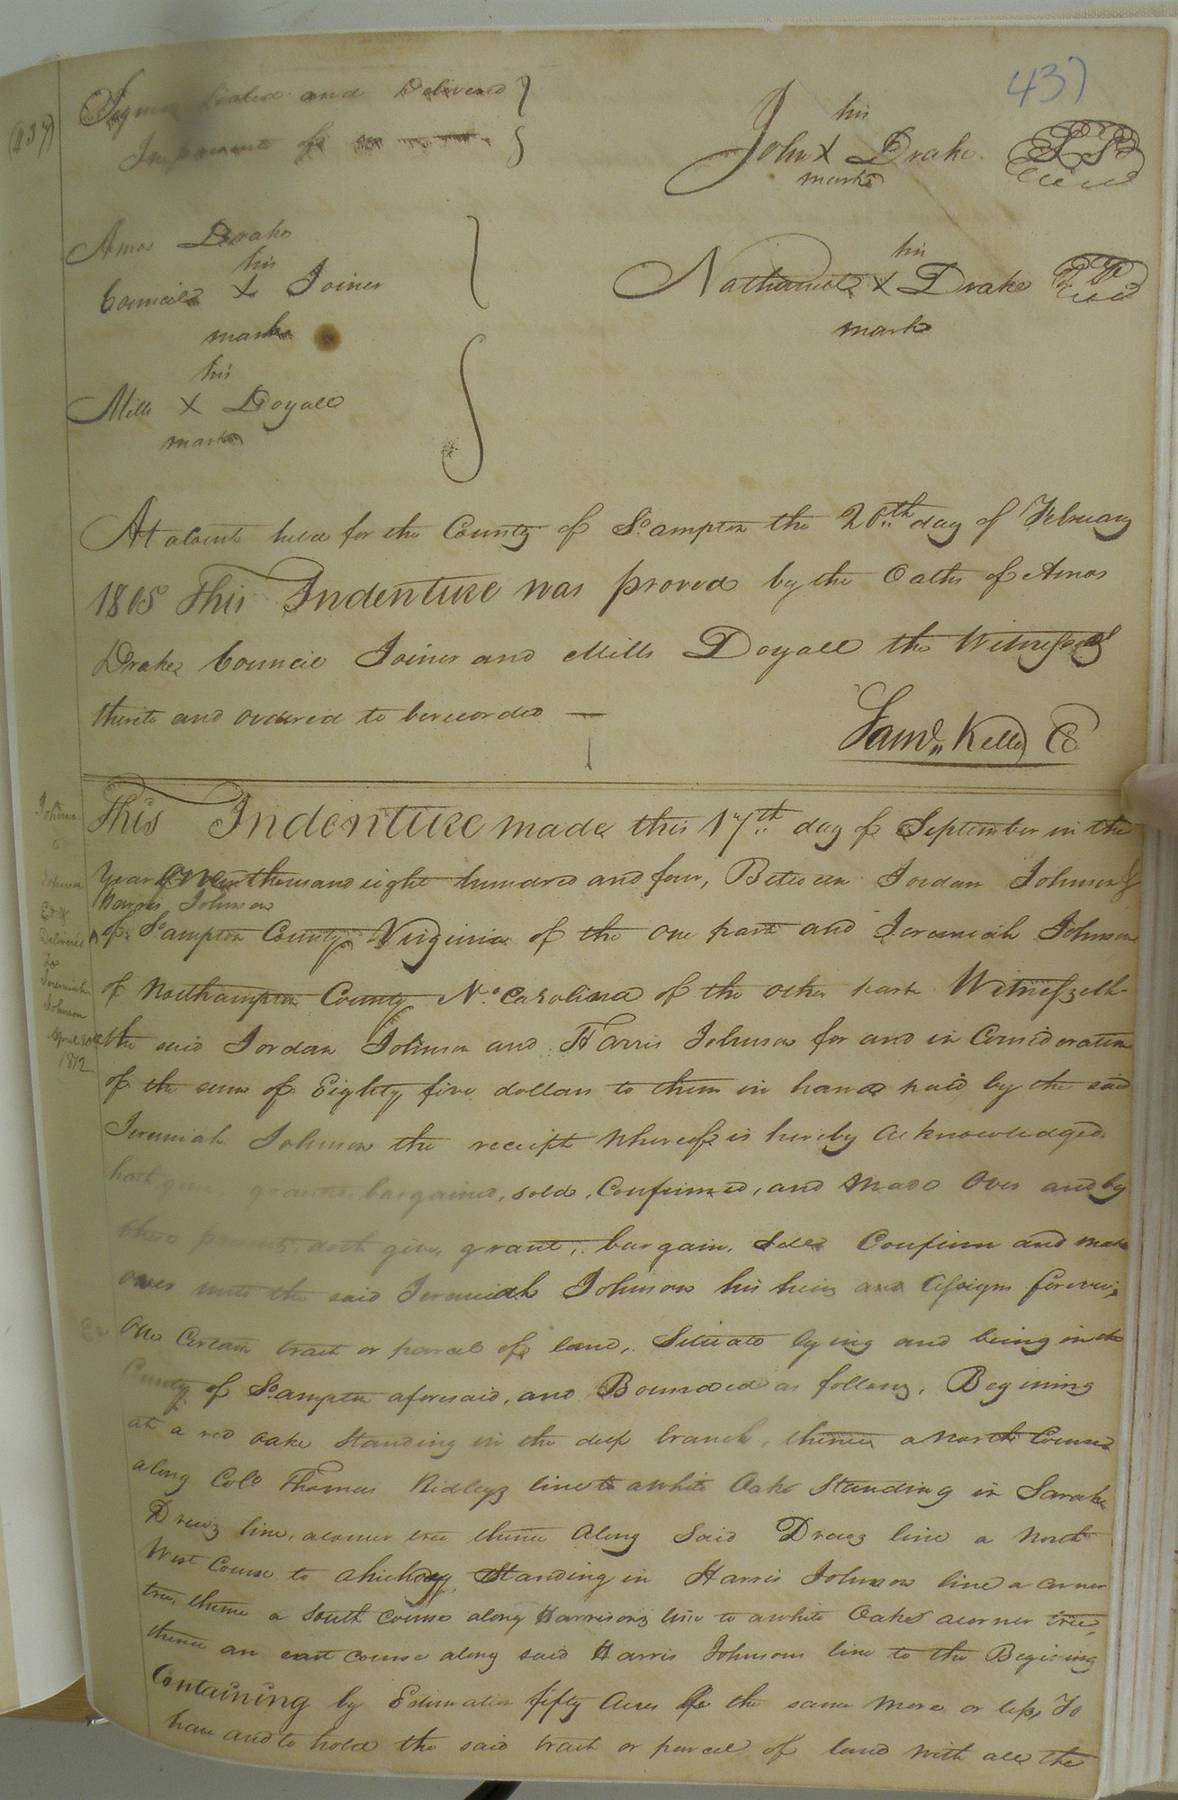 437
(437)
Signed Sealed and Delivered
In presents of
his
John X Drake
mark
his
Nathaniel X Drake
mark
Amos Drake
his
Council X Joiner
mark
his
Mills X Doyall
mark
At a Court held for the County of So.ampton the 20th day of February
1805 This Indenture was proved by the Oaths of Amos
Drake Council Joiner and Mills Doyall the Witnesses
thereto and ordered to be recorded —
Saml. Kello C
This Indenture made this 17th day of September in the
Year One thousand eight hundred and four, Between Jordan Johnson &
Harris Johnson
of So.ampton County Virginia of the one part and Jeremiah Johnson
of Northampton County No. Carolina of the other part Witnesseth
the said Jordan Johnson and Harris Johnson for and in Consideration
of the sum of Eighty five dollars to them in hand paid by the said
Jeremiah Johnson the receipt whereof is hereby acknowledged
hath given granted bargained, sold, Confirmed, and made Over and by
these presents doth give, grant, bargain, Sell Confirm and make
over unto the said Jeremiah Johnson his heirs and Assigns forever,
One Certain tract or parcel of land, Situate lying and being in the
County of So.ampton aforesaid, and Bounded as follows, Begining
at a red oake Standing in the deep branch, thence a North Course
along Colo Thomas Ridleys line to a white Oake Standing in Sarah
Drews line, a corner tree thence along Said Drews line a North
West Course to a hickory Standing in Harris Johnson line a corner
tree, thence a South course along Harrisons line to a white Oake a corner tree,
thence an east course along said Harris Johnsons line to the Begining
Containing by Estimation fifty Acres be the same more or less, To
have and to hold the said tract or parcel of land with all the
Johnson
to
Johnson
Ex &
Delivered
to
Jeremiah
Johnson
April
1812